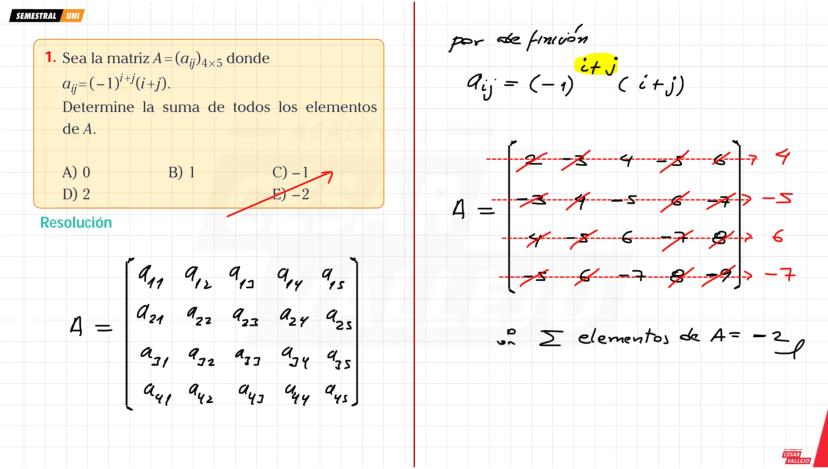 SEMESTRAL UNI
1. Sea la matriz A=(aij)4×5 donde
aij=(–1)^i+j(i+j).
Determine la suma de todos los elementos
de A.
A) 0 B) 1 C) –1
D) 2 E) –2
Resolución
A = [ a11 a12 a13 a14 a15
a21 a22 a23 a24 a25
a31 a32 a33 a34 a35
a41 a42 a43 a44 a45 ]
por definición
aij = (-1)^i+j (i+j)
A = [ 2 -3 4 -5 6 ] → 4
-3 4 -5 6 -7 → -5
4 -5 6 -7 8 → 6
-5 6 -7 8 -9 → -7
∴ Σ elementos de A = -2
ACADEMIA
CÉSAR
VALLEJO